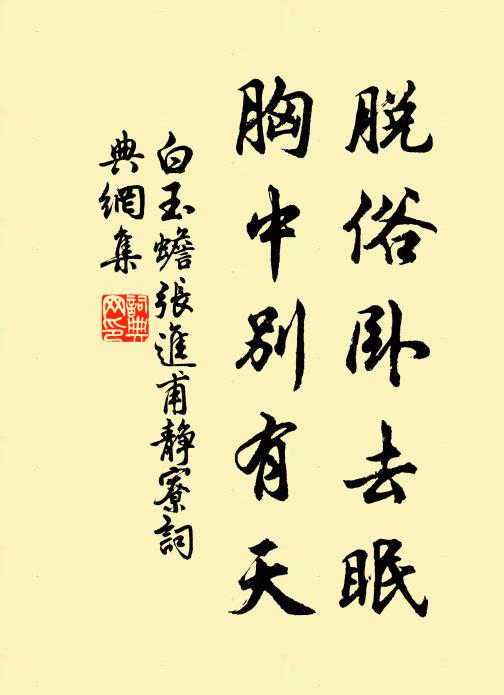 脱俗卧去眠
胸中别有天
白玉蟾張進甫靜寮詞
典網集
詞典
网印